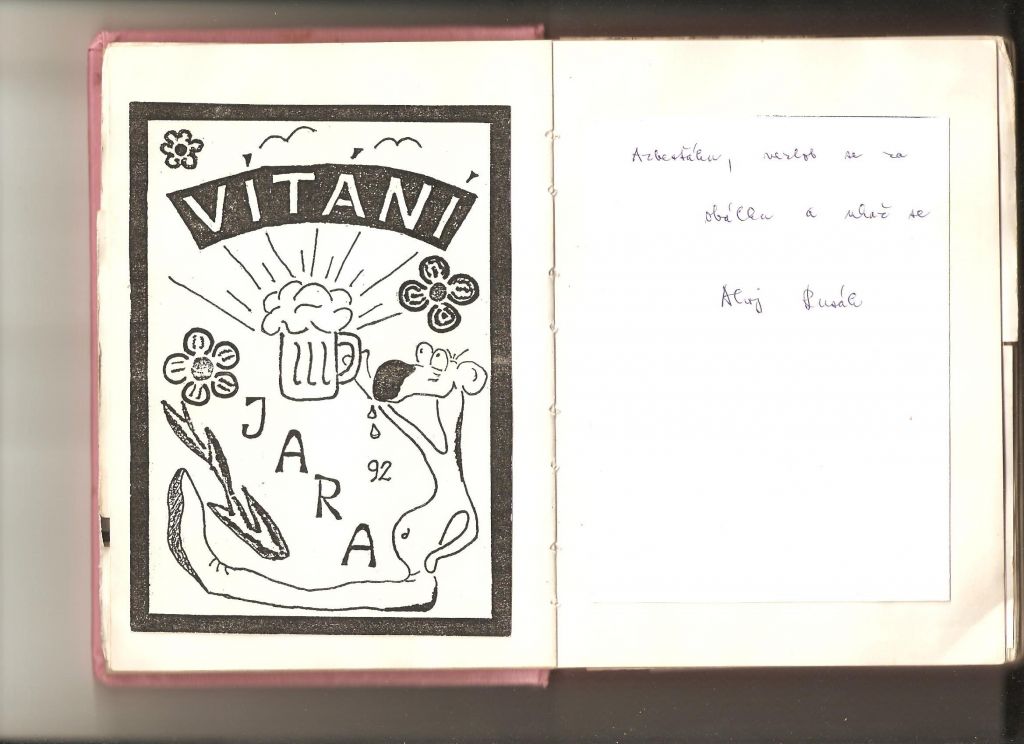 VÍTÁNÍ
JARA
92
Azbesťáku, nezlob se za
obálku a ukaž se
Aloj